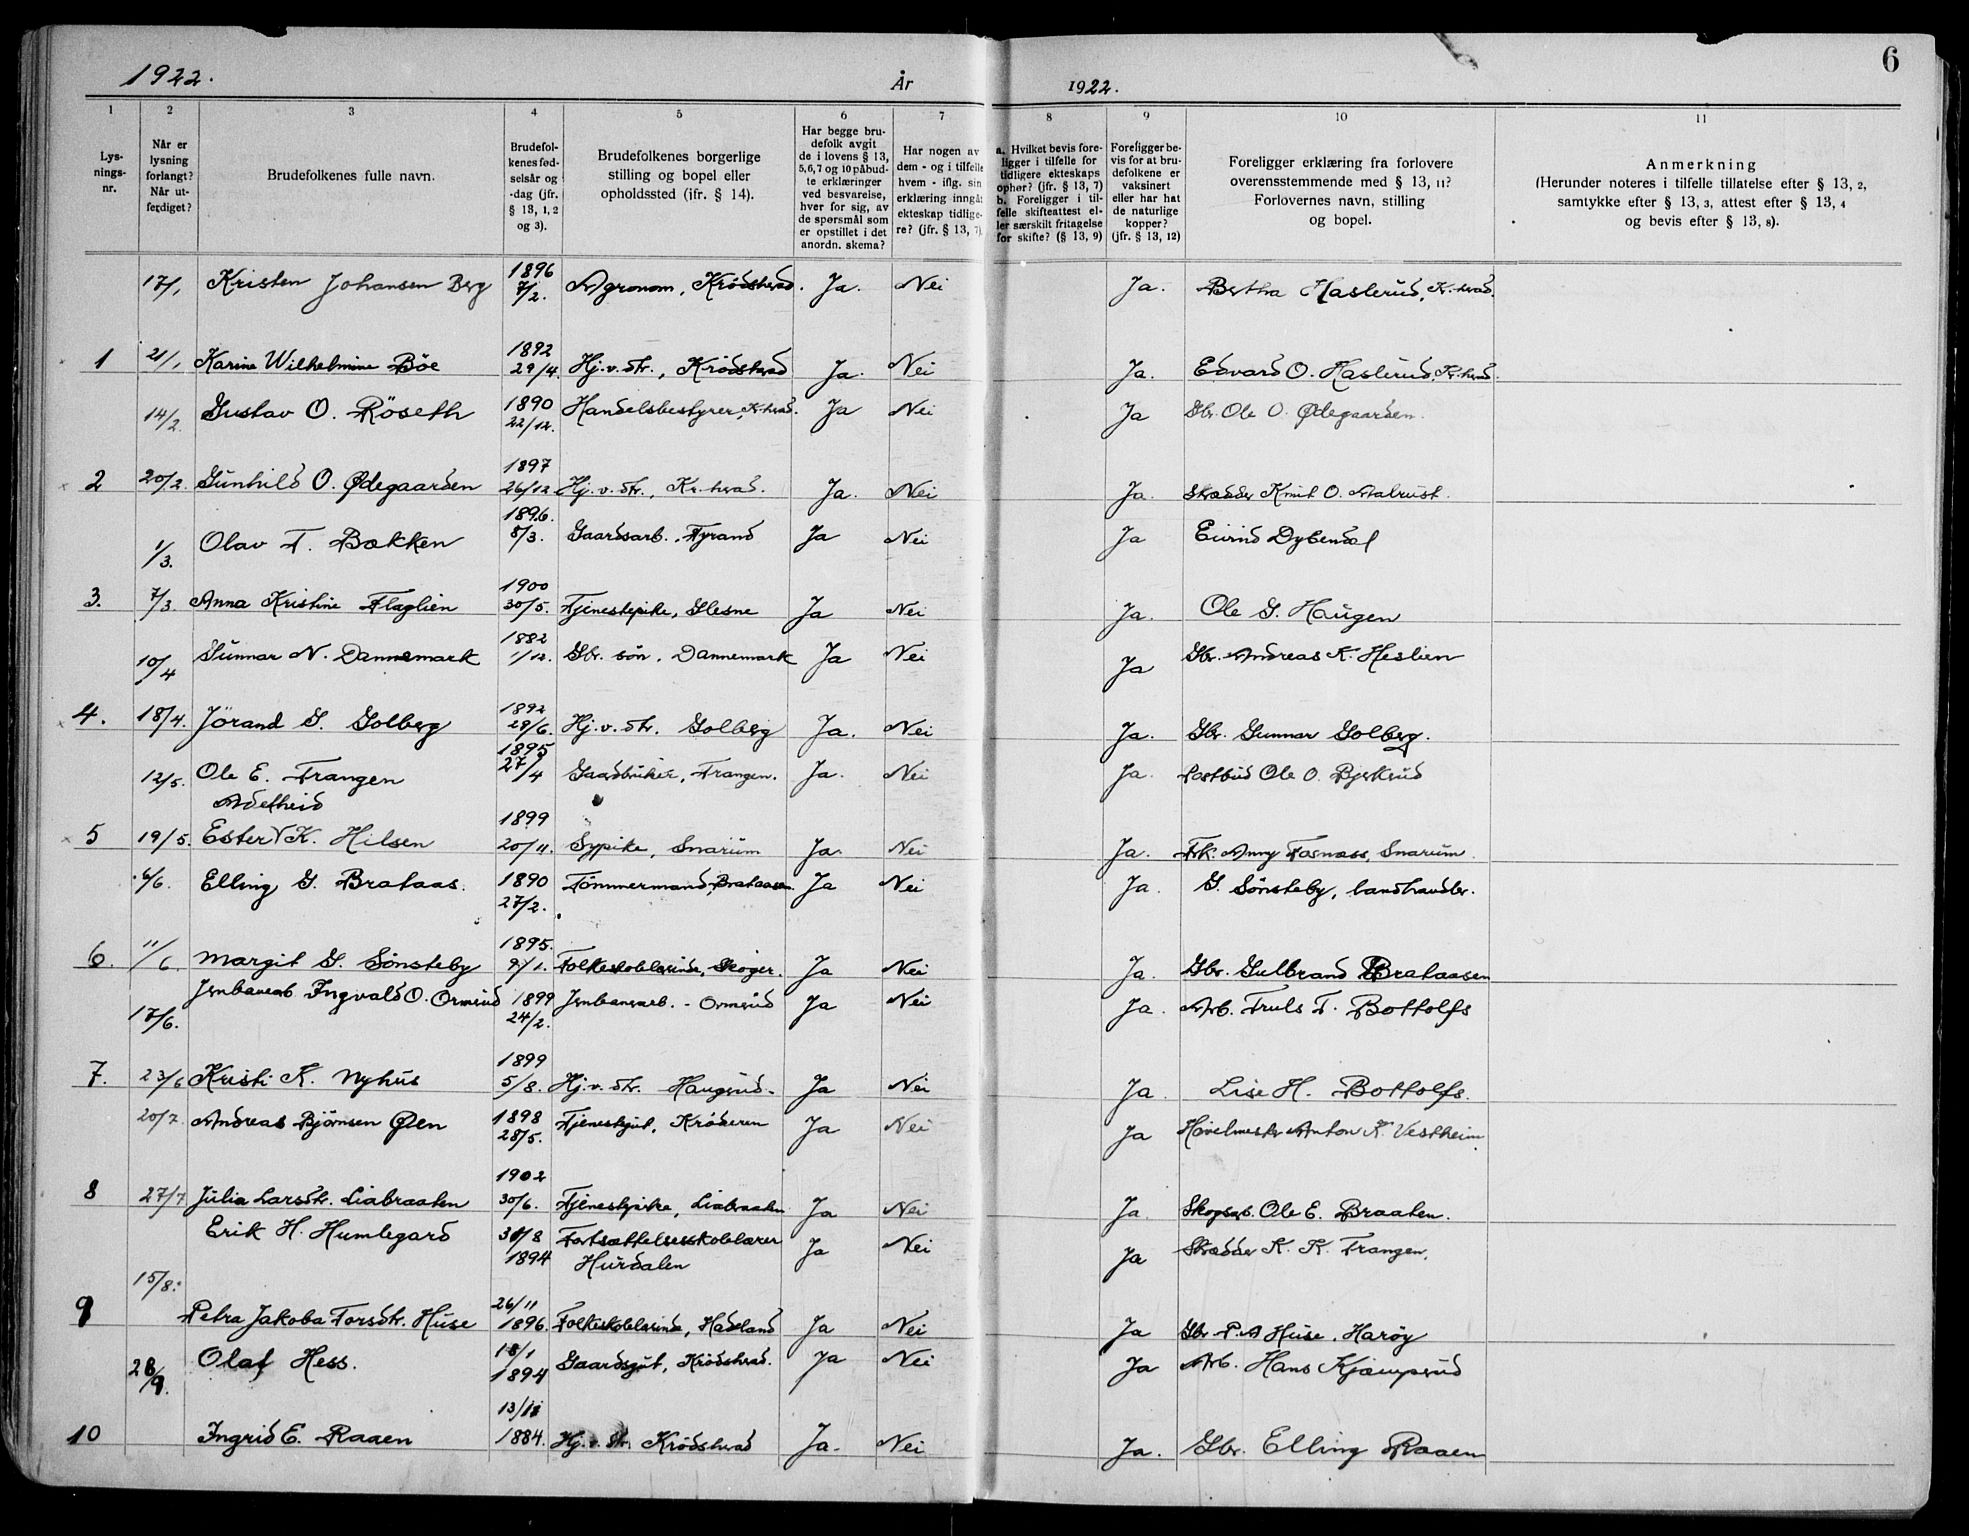 1922.
År
1922.
6
1
2
3
4
5
6
7
8
9
10
11
Lys-
nings-
nr.
Når er
lysning
forlangt?
Når ut-
ferdiget?
Brudefolkenes fulle navn.
Brudefol-
kenes fød-
selsår og
-dag (jfr.
§ 13, 1, 2
og 3).
Brudefolkenes borgerlige
stilling og bopel eller
opholdssted (ifr. § 14).
Har begge bru-
defolk avgit
de i lovens § 13,
5,6,7 og 10 påbud-
te erklæringer
ved besvarelse,
hver for sig, av
de spørsmål som
er opstillet i det
anordn. skema?
Har nogen av
dem - og i tilfelle
hvem - iflg. sin
erklæring inngåt
ekteskap tidlige-
re? (jfr. § 13, 7).
a. Hvilket bevis fore-
ligger i tilfelle for
tidligere ekteskaps
ophør? (jfr. § 13, 7)
b. Foreligger i til-
felle skifteattest el-
ler særskilt fritagelse
for skifte? (§ 13, 9)
Foreligger be-
vis for at bru-
defolkene er
vaksinert
eller har hat
de naturlige
kopper?
(jfr. § 13, 12)
Foreligger erklæring fra forlovere
overensstemmende med § 13, 11?
Forlovernes navn, stilling
og bopel.
Anmerkning
(Herunder noteres i tilfelle tillatelse efter § 13, 2,
samtykke efter § 13, 3, attest efter § 13, 4
og bevis efter § 13, 8).
17/1 Kristen Johansen Berg 1896 7/2. Agronom, Krødsherad. Ja. Nei Ja. Bertha Haslerud, Kr.herad.
1 21/1 Karine Wilhelmine Böe 1892 29/4. Hj.v.dtr., Krödsherad Ja. Nei Ja. Edvard O. Haslerud, Kr.herad.
14/2. Gustav O. Röseth 1890 22/12. Handelsbestyrer, Kr.herad. Ja Nei Ja Gbr. Ole O. Ødegaarden.
2 20/2. Gunhild O. Ødegaarden 1897 26/12 Hj.v.dtr., Kr.herad. Ja. Nei Ja. Skrædder Knut O. Malrust.
1/3. Olav T. Bækken 1896. 8/3. Gaardsarb., Fyrand Ja Nei Ja Eivind Dybendal
3. 7/3 Anna Kristine Flaglien 1900 30/5. Tjenestepike, Glesne Ja Nei Ja. Ole G. Haugen
10/4 Gunnar N. Dannemark 1882 1/12. Gbr. sön, Dannemark Ja Nei Ja Gbr. Andreas K. Heslien
4. 18/4. Jörand G. Golberg 1892 29/6. Hj.v.dtr. Golberg Ja. Nei Ja. Gbr. Gunnar Golberg.
12/5. Ole E. Frangen 1895 27/4 Gaardbruker, Frangen. Ja. Nei Ja. Postbud Ole O. Bjerkerud
Adelheid
5 19/5. Ester K. Hilsen 1899 20/11. Sypike, Snarum Ja. Nei Ja. Frk. Anny Fosnæss, Snarum.
6/6. Elling G. Brataas. 1890 27/2. Tömmermand, Brataasen. Ja Nei Ja. G. Sönsteby, landhandler.
6. 11/6. Margit G. Sönsteby 1895. 9/1. Folkeskolelærinde, Skoger. Ja Nei Ja. Gbr. Gulbrand Brataasen
17/6. Jernbanearb. Ingvald O. Ormerud 1899 24/2. Jernbanearb. - Ormerud Ja Nei Ja. Arb. Truls T. Bottolfs
7. 23/6 Kristi K. Nyhus 1899 5/8. Hj.v.dtr. Haugerud. Ja Nei Ja. Lise H. Bottolfs.
20/7. Andreas Bjørnsen Øen 1898 28/5. Tjenestegut, Kröderen Ja Nei Ja Høvelmester Anton K. Vestheim
8 27/7 Julia Larsdtr. Liabraaten 1902 30/6. Tjenestepike, Liabraaten Ja Nei Ja. Skogsarb. Ole E. Braaten.
Erik H. Humlegard 31/8 1894 Fortsættelsesskolelærer Hurdalen Ja Nei Ja Skrædder K. K. Frangen.
15/8.
9 Petra Jakoba Torsdtr. Huse 26/11 1896. Folkeskolelærinde, Hadeland Ja Nei Ja Gbr. P. A. Huse, Harøy
28/9. Olaf Hess. 18/1 1894 Gaardsgut, Krödsherad. Ja Nei Ja Arb. Hans Kjæmperud
10 Ingrid E. Raaen 13/11 1884. Hj.v.dtr. Krødsherad Ja. Nei Ja. Gbr. Elling Raaen